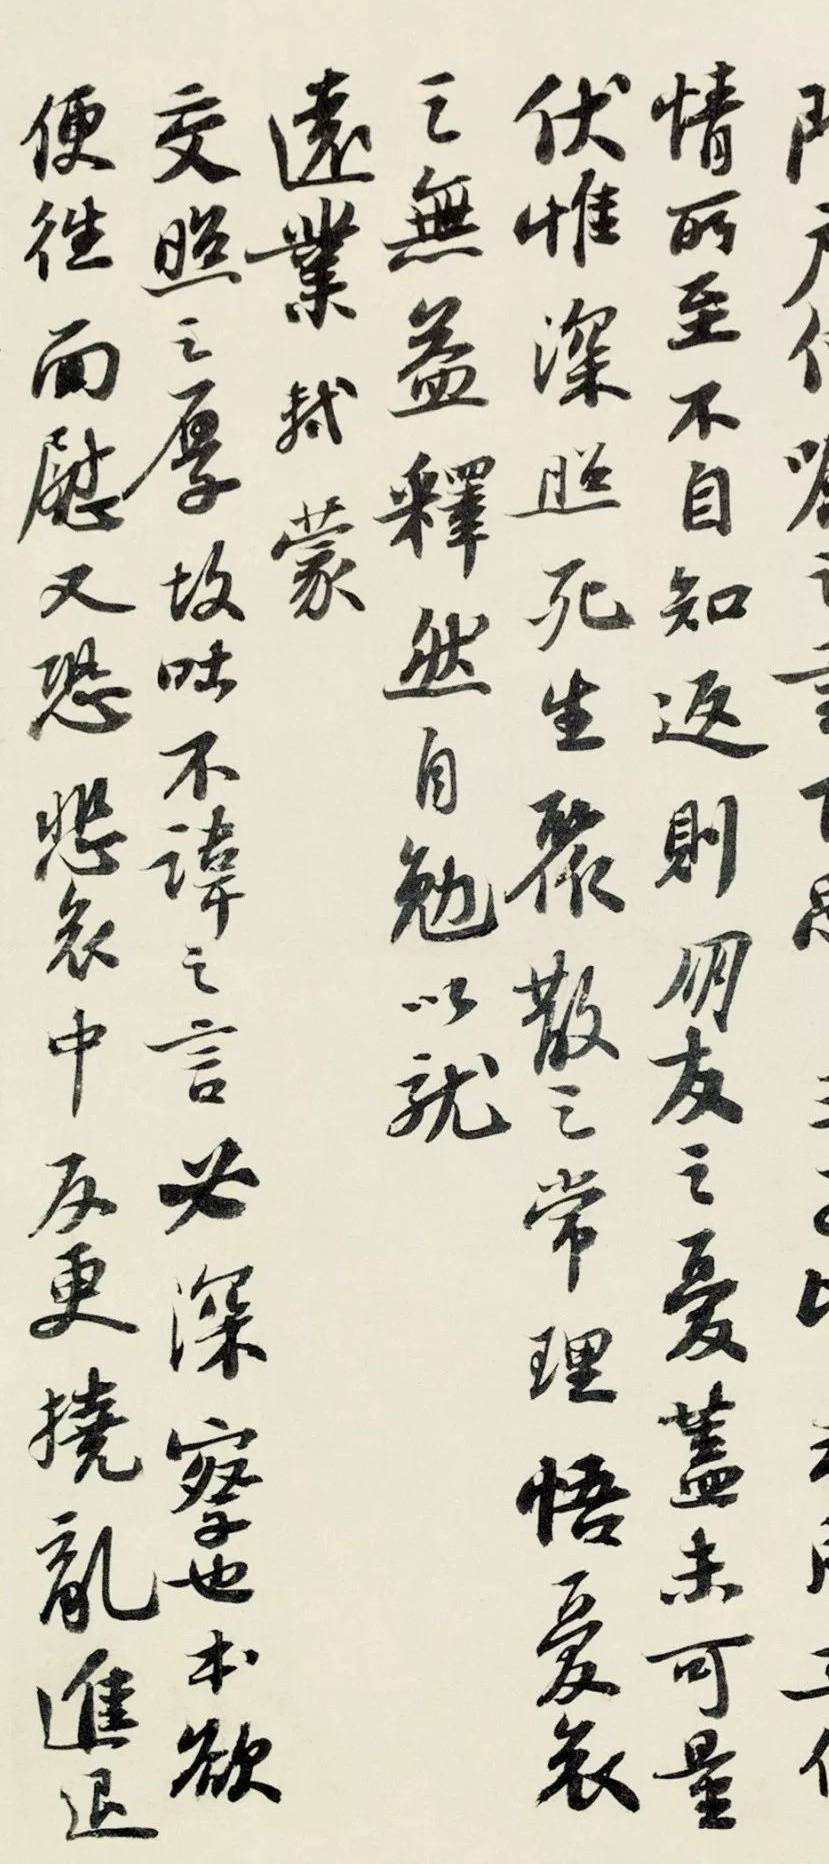 情所至不自知返則朋友之憂蓋未可量
伏惟深照死生聚散之常理悟憂哀
之無益釋然自勉以就
遠業軾蒙
交照之厚故吐不諱之言必深察也本欲
便往面慰又恐悲哀中反更撓亂進退